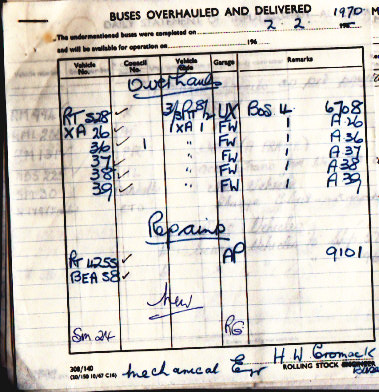 BUSES OVERHAULED AND DELIVERED
The undermentioned buses were completed on 2. 2. 1970
and will be available for operation on 196
Vehicle No. Council No. Vehicle Garage Remarks
Overhauls
RT 528 ✓ UX BOS 14 6708
XA 26 ✓ 1 XA 1 FW 1 A 26
36 ✓ 1 " FW 1 A 36
37 ✓ " FW 1 A 37
38 ✓ " FW 1 A 38
39 ✓ " FW 1 A 39
Repairs
RT 4255 ✓ AP 9101
BEA 58 ✓
New
Sm 24 RG
H W Cromack
308/140 ROLLING STOCK
Mechanical Eng